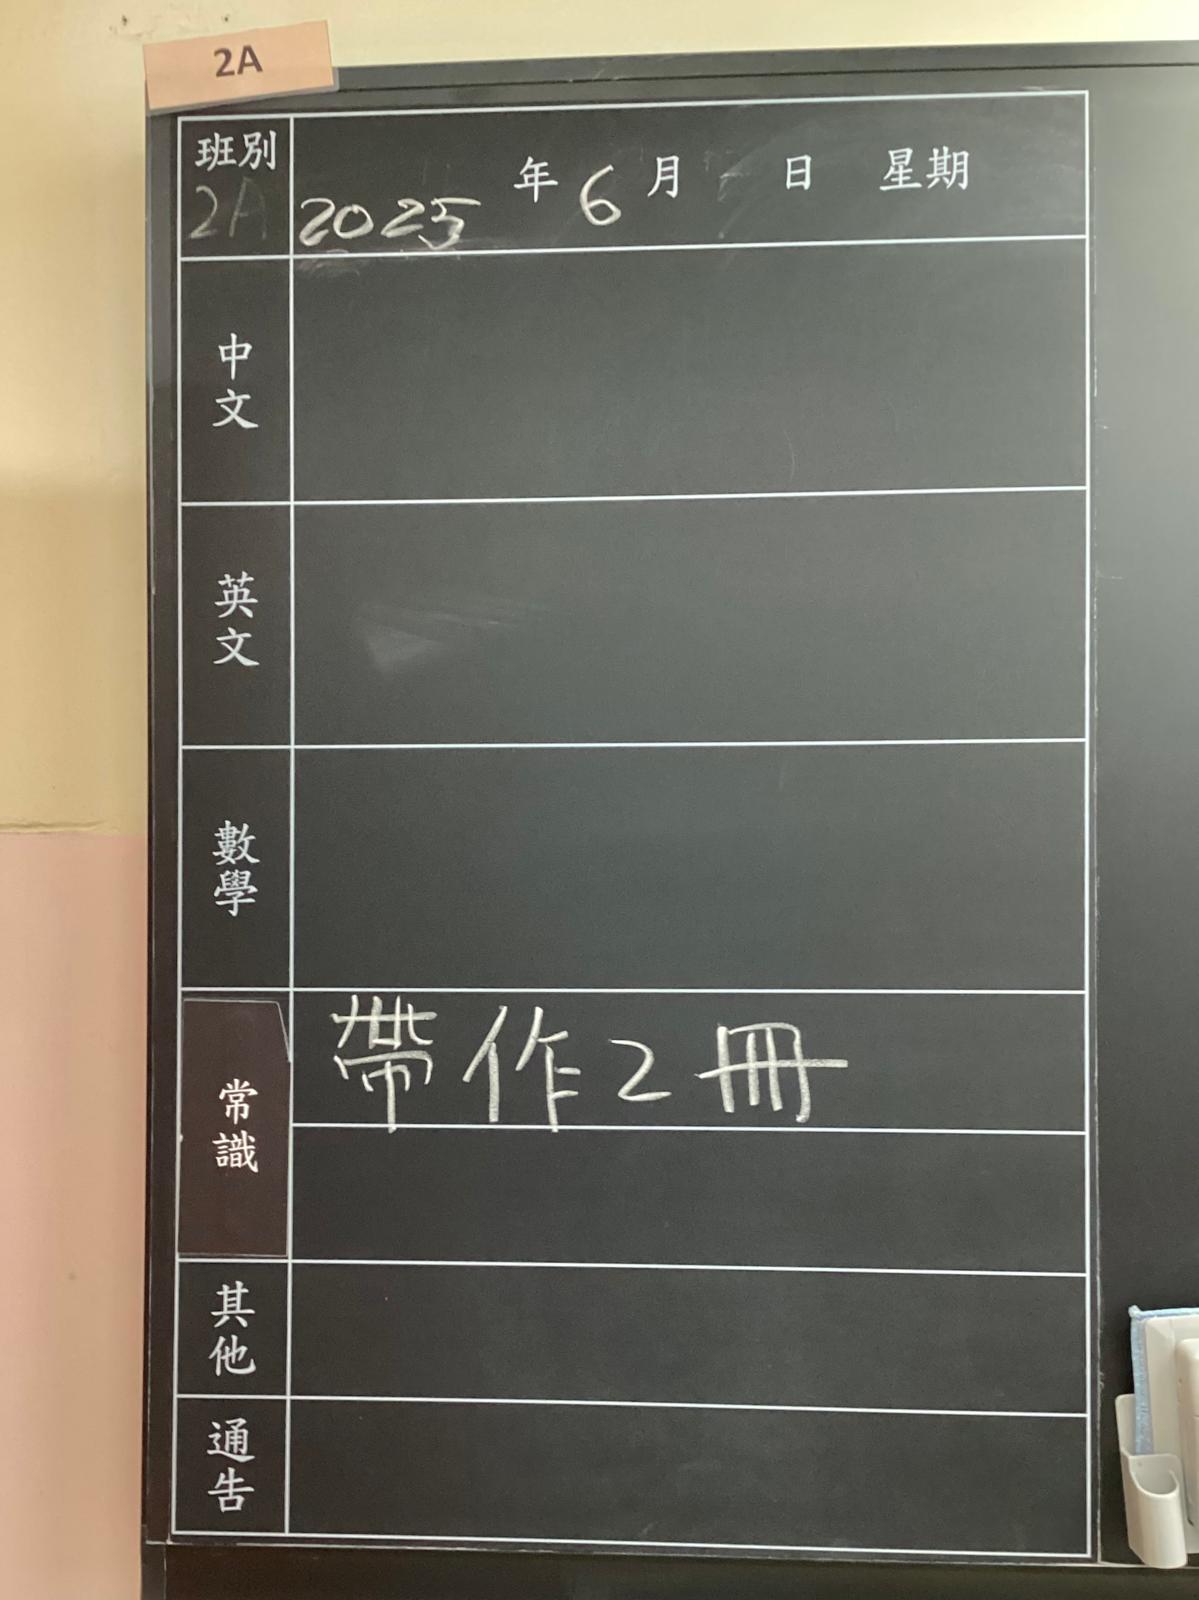 2A
班別 2A
2025年6月 日 星期
中文
英文
數學
常識 帶作2冊
其他
通告